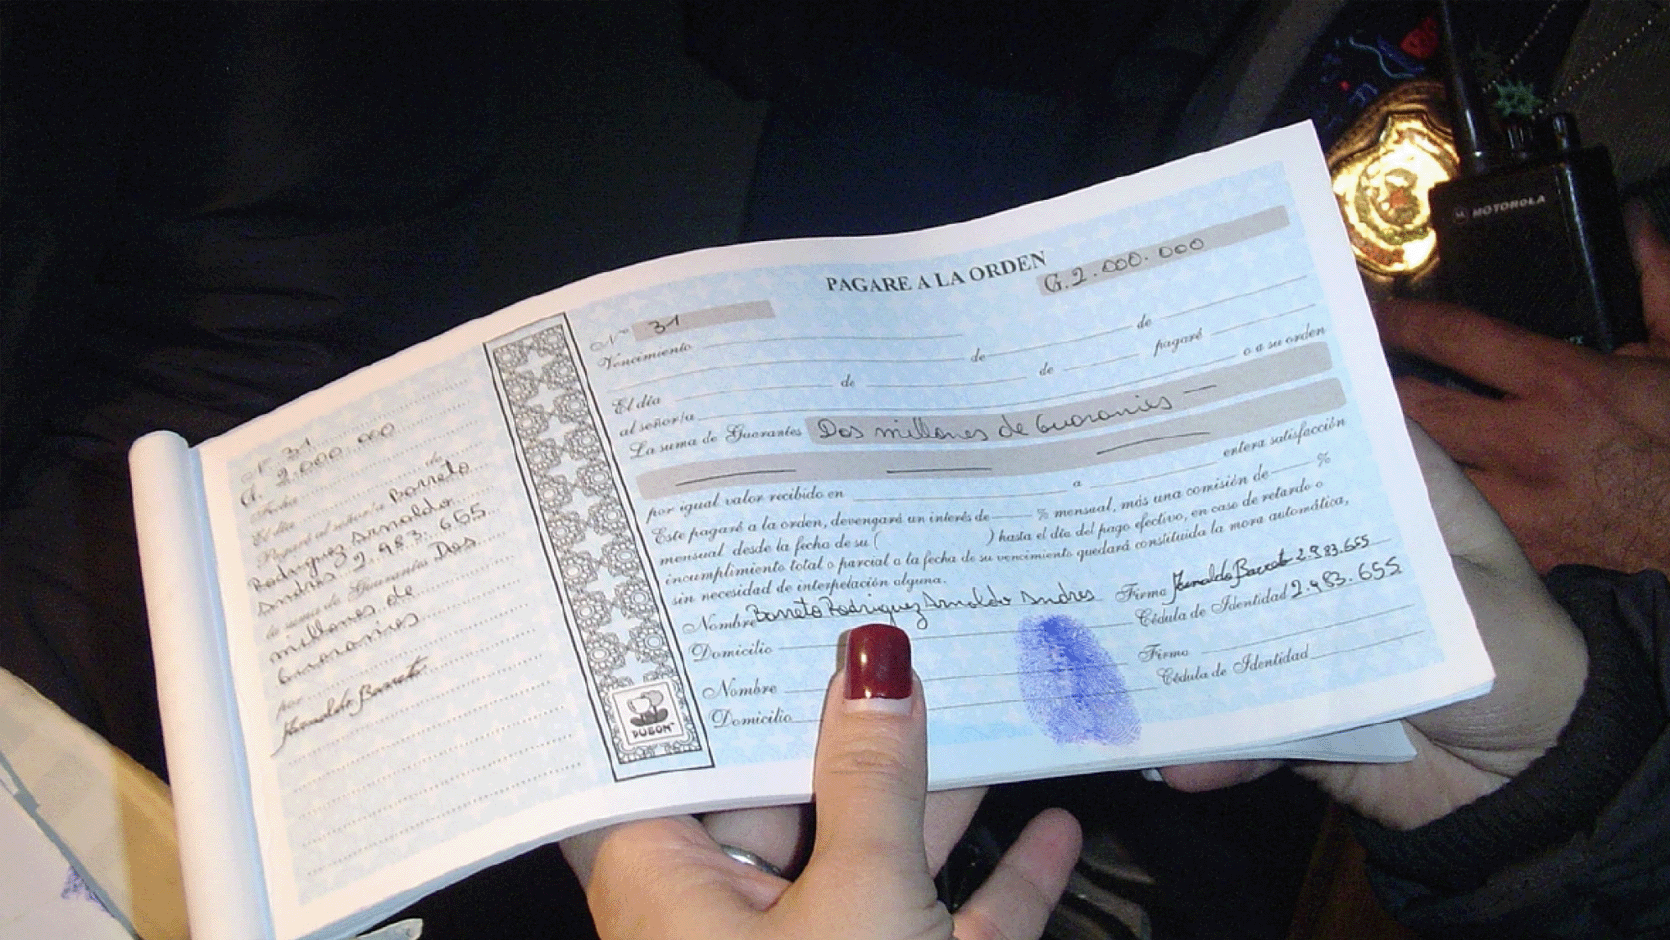 Nº 31
G. 2.000.000
Fecha de
El día
Pagaré al señor/a Barreto
Rodriguez Arnaldo
Andrés 2.983.655
la suma de Guaraníes Dos
millones de
Guaranies
por
Arnaldo Barreto
DUBOM
PAGARE A LA ORDEN
G. 2.000.000
Nº 31
Vencimiento de de
El día de de pagaré
al señor/a o a su orden
La suma de Guaraníes Dos millones de Guaranies
por igual valor recibido en a entera satisfacción
Este pagaré a la orden, devengará un interés de % mensual, más una comisión de %
mensual desde la fecha de su ( ) hasta el día del pago efectivo, en caso de retardo o
incumplimiento total o parcial a la fecha de su vencimiento quedará constituida la mora automática,
sin necesidad de interpelación alguna.
Nombre Barreto Rodriguez Arnaldo Andres Firma Arnaldo Barreto 2.983.655
Domicilio Cédula de Identidad 2.983.655
Nombre Firma
Domicilio Cédula de Identidad
MOTOROLA